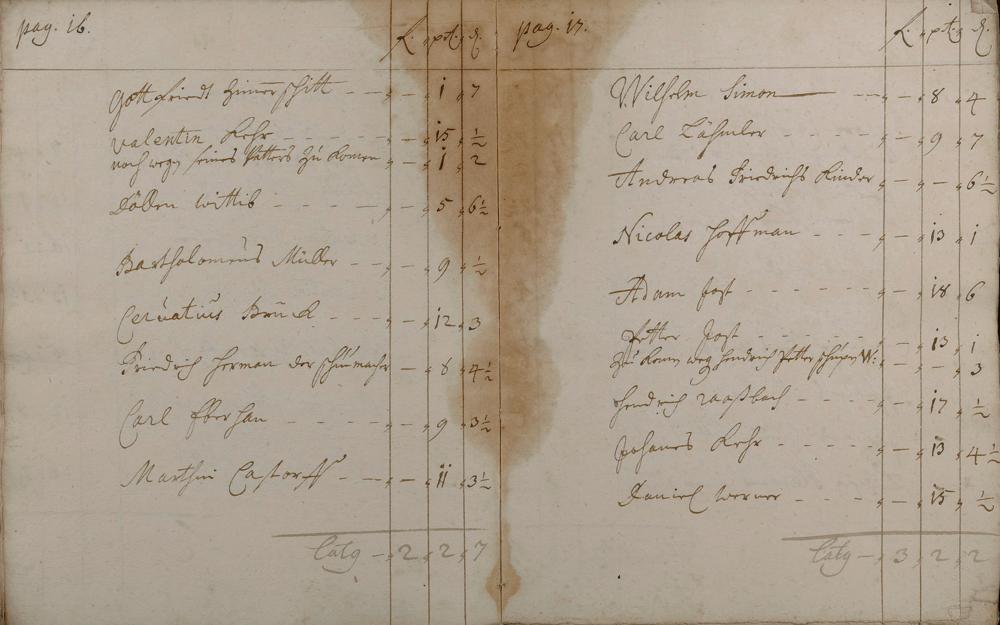 pag. 16.
f. pt. d.
Gottfriedt Zimerschitt — 1 7
Valentin Kehr — 15 ½
noch wegen seines Vatters Zu Komen — 1 2
wittib — 5 6½
Bartholomeus Müller — 9 ½
Cervatius Brück — 12 3
Friedrich Herman der Schumacher — 8 4½
Carl Eberhan — 9 3½
Marthin Castorff — 11 3½
Latg — 2 2 7
pag. 17.
f. pt. d.
Wilhelm Simon — 8 4
Carl — 9 7
Andreas Friedrichs Kinder — — 6½
Nicolas Hoffman — 13 1
Adam Jost — 18 6
Petter Jost — 13 1
Zu Komen weg Hendrich Petter W: — — 3
Hendrich — 17 ½
Johanes Kehr — 13 4½
Daniel Werner — 15 ½
Latg — 3 2 2